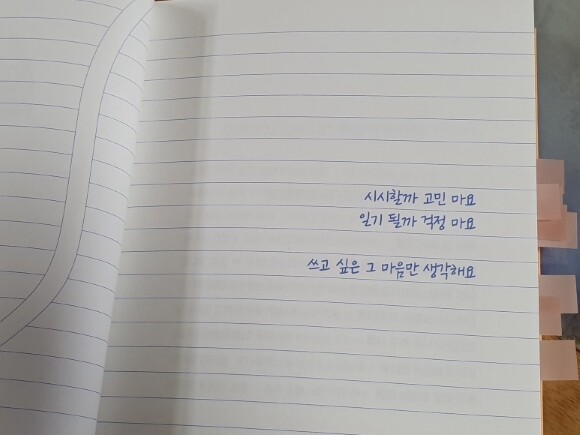 시시할까 고민 마요
일기 될까 걱정 마요
쓰고 싶은 그 마음만 생각해요